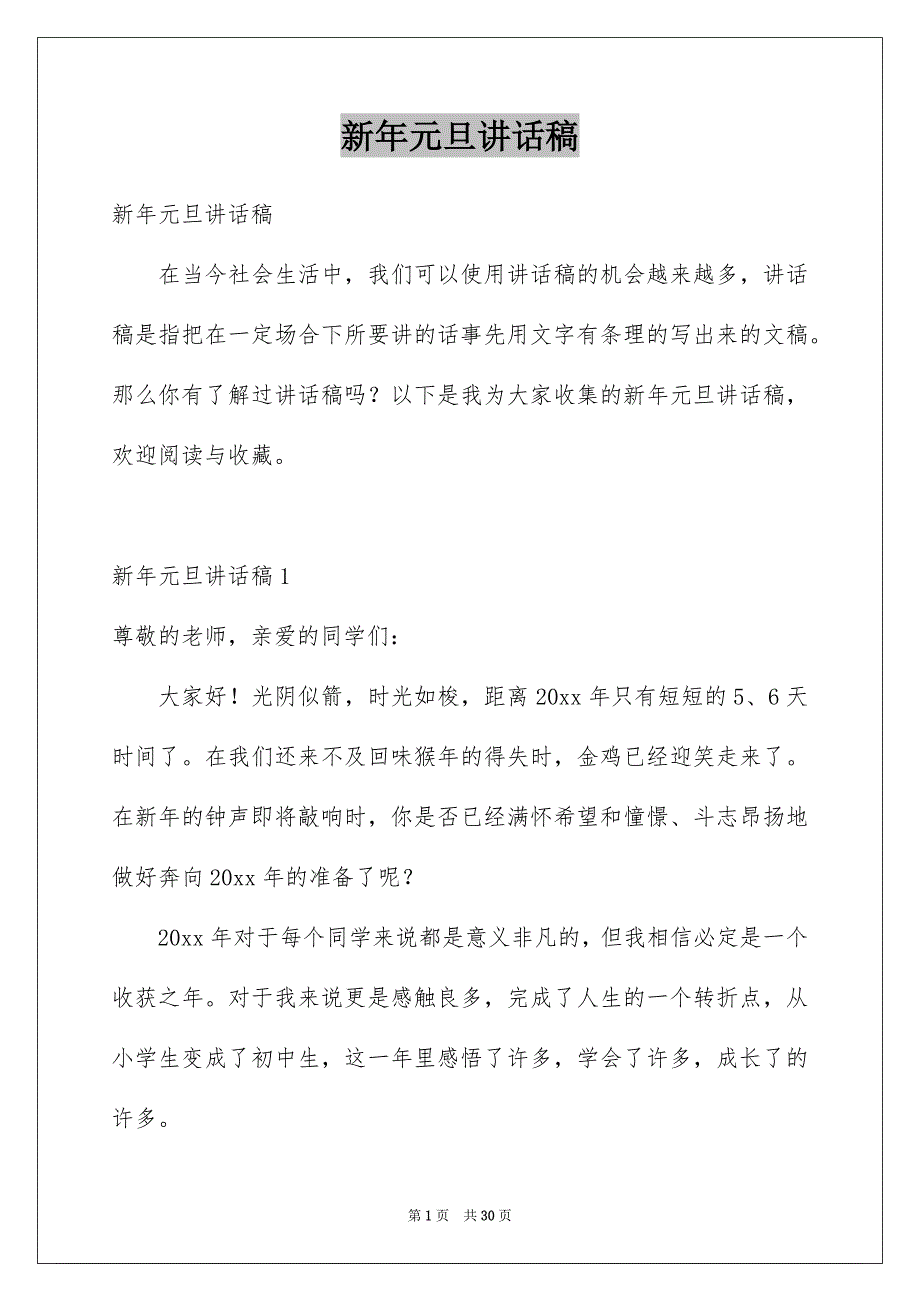 新年元旦讲话稿
新年元旦讲话稿
在当今社会生活中，我们可以使用讲话稿的机会越来越多，讲话
稿是指把在一定场合下所要讲的话事先用文字有条理的写出来的文稿。
那么你有了解过讲话稿吗？以下是我为大家收集的新年元旦讲话稿，
欢迎阅读与收藏。
新年元旦讲话稿1
尊敬的老师，亲爱的同学们：
大家好！光阴似箭，时光如梭，距离20xx年只有短短的5、6天
时间了。在我们还来不及回味猴年的得失时，金鸡已经迎笑走来了。
在新年的钟声即将敲响时，你是否已经满怀希望和憧憬、斗志昂扬地
做好奔向20xx年的准备了呢？
20xx年对于每个同学来说都是意义非凡的，但我相信必定是一个
收获之年。对于我来说更是感触良多，完成了人生的一个转折点，从
小学生变成了初中生，这一年里感悟了许多，学会了许多，成长了的
许多。
第1页 共30页